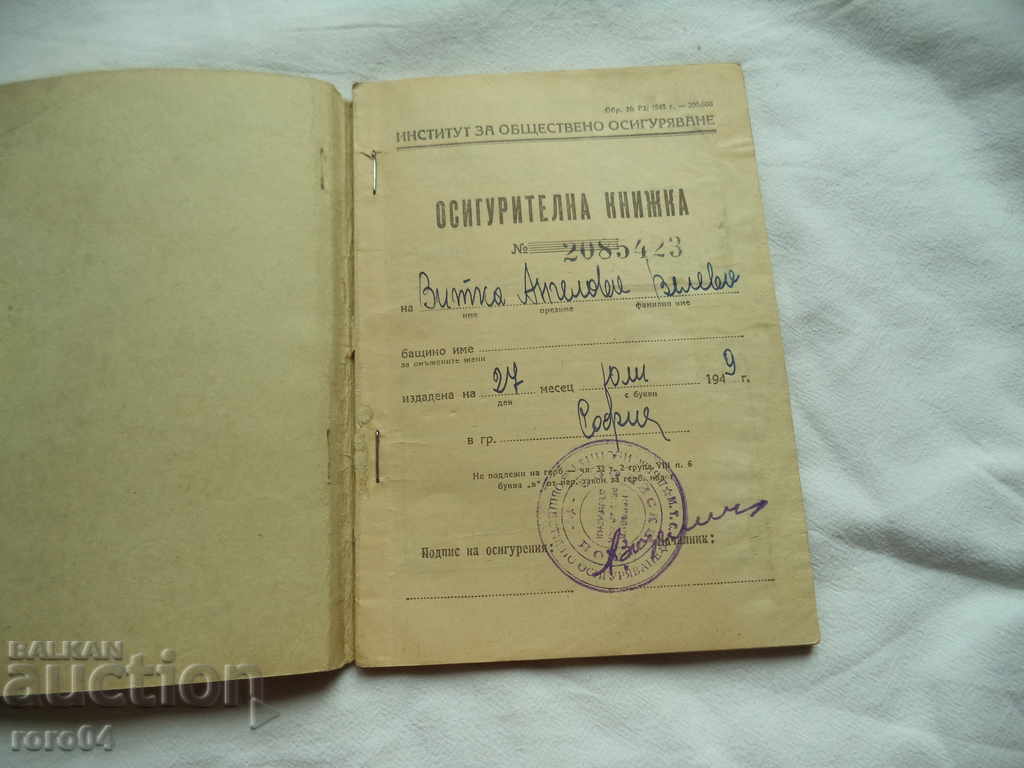 Обр. 20 РД 1945 г. — 200,000
ИНСТИТУТ ЗА ОБЩЕСТВЕНО ОСИГУРЯВАНЕ
ОСИГУРИТЕЛНА КНИЖКА
№ 2085423
на Витка Ангелова Велева
име презиме фамилно име
бащино име
за омъжените жени
издадена на 27 месец Юли 1949 г.
ден с букви
в гр. София
Не подлежи на герб чл. 32 т. 2 група VIII п. 6
буква „в" от нар. закон за герб. нал.
Подпис на осигурения: Началник:
BALKAN
auction
roro04